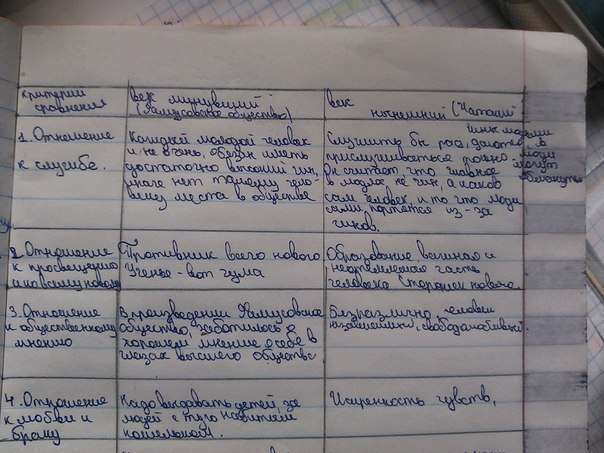 критерий сравнения
век минувший
(Фамусовское общество)
век нынешний (Чатский
1. Отношение
к службе.
Каждый молодой человек
и не очень, обязан иметь
достаточно высокий чин,
иначе нет такому чело-
веку места в обществе
Служить бы рад,
прислуживаться тошно
Он считает, что главное
в людях не чин, а каков
сам человек, и то что люди
сами портятся из-за
чинов.
чины людьми
даются а
люди
могут
обмануться
2. Отношение
к просвещению
и ко всему новому
Противник всего нового
Ученье - вот чума
Образование важная и
неотъемлемая часть
человека Сторонен нового
3. Отношение
к общественному
мнению
В произведении Фамусовское
общество заботилось о
хорошем мнение о себе в
глазах высшего общества.
Безразлично, человек
независимый, свободолюбивый.
4. Отношение
к любви и
браку
Надо выдавать детей, за
людей с туго набитым
кошельком.
Искренность чувств,